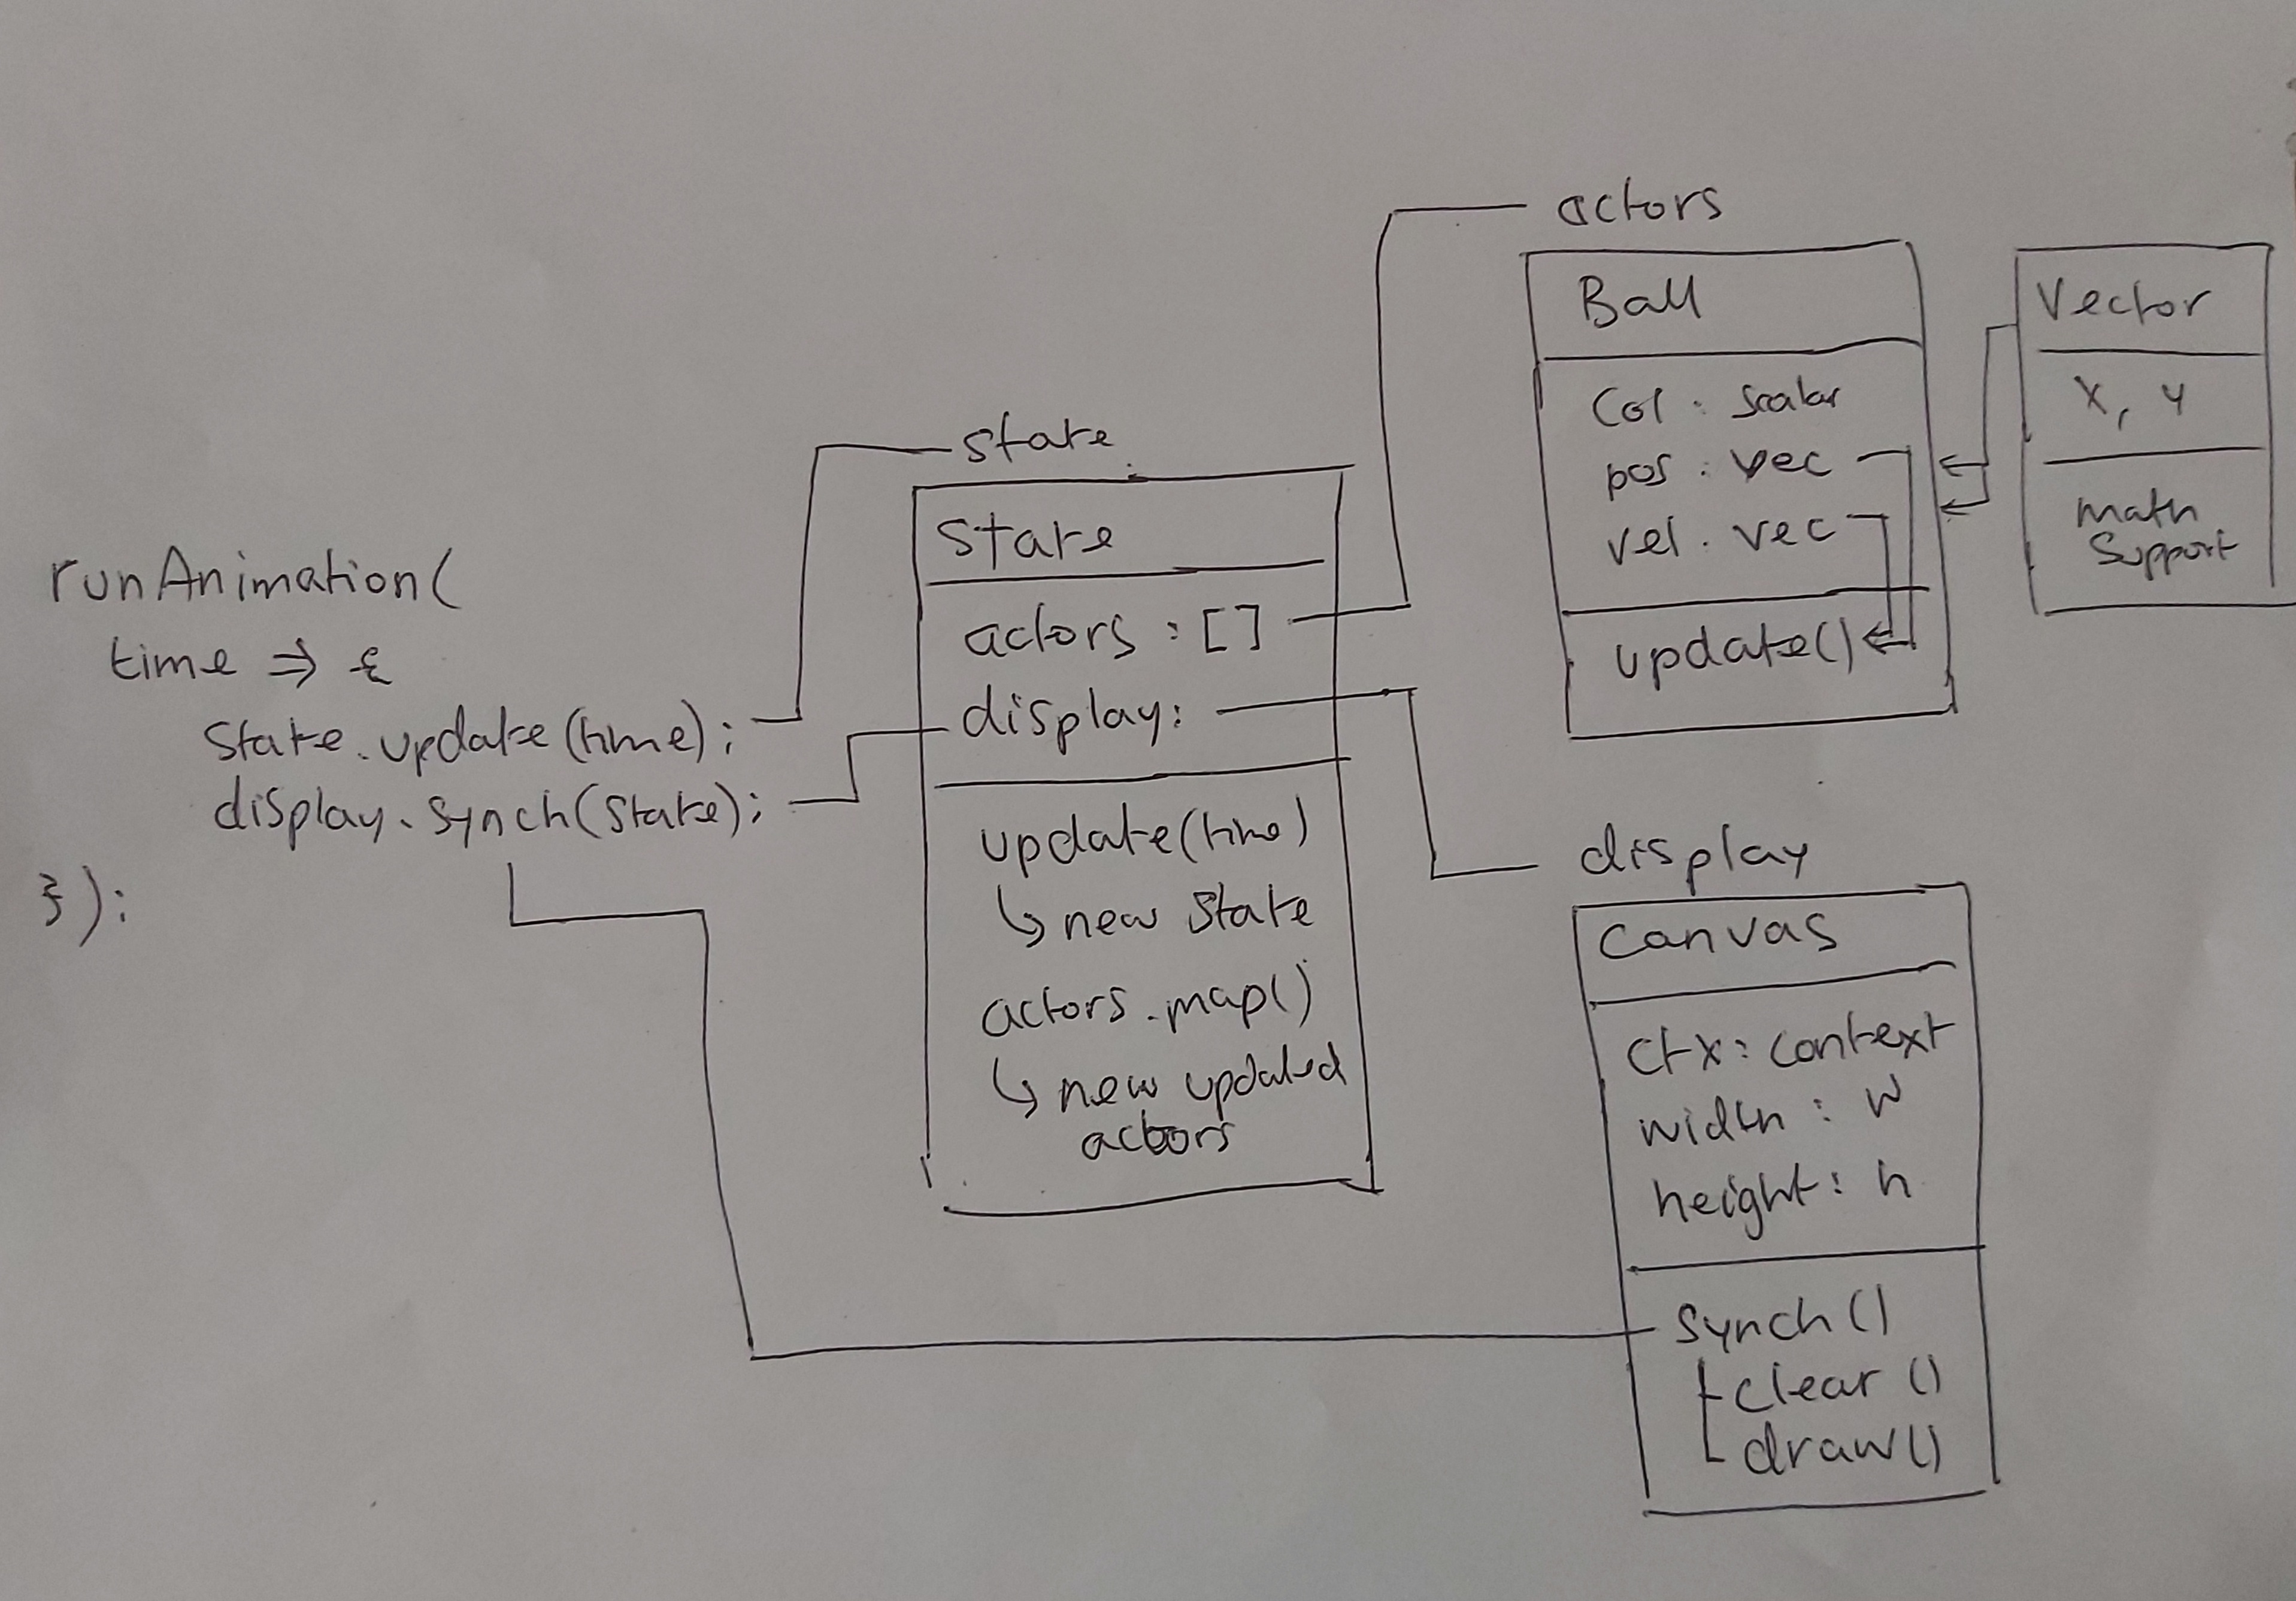 runAnimation(
time => {
state.update(time);
display.synch(state);
});
state
State
actors : []
display:
update(time)
↳ new State
actors.map()
↳ new updated
actors
actors
Ball
Col : scalar
pos : vec
vel : vec
update()
Vector
x, y
math
Support
display
Canvas
ctx: context
width : w
height : h
synch()
clear()
draw()